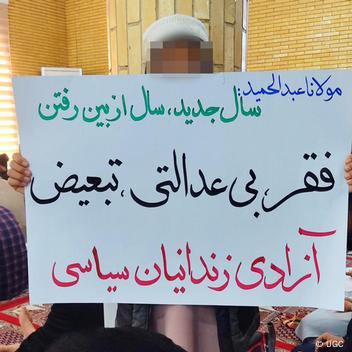 مولانا عبدالحمید:
سال جدید، سال از بین رفتن
فقر، بی عدالتی، تبعیض
آزادی زندانیان سیاسی
© UGC